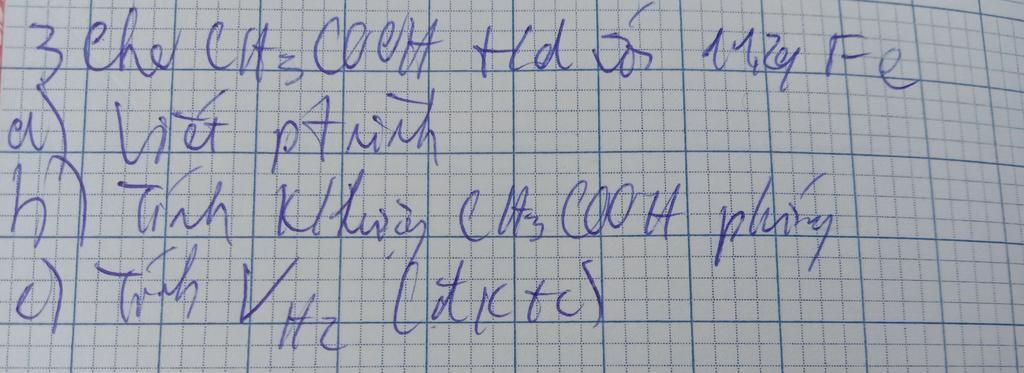 3 Cho CH3COOH t/d với 11,2g Fe
a) Viết ptrình
b) Tính K/lượng CH3COOH phứng
c) Tính VH2 (đktc)